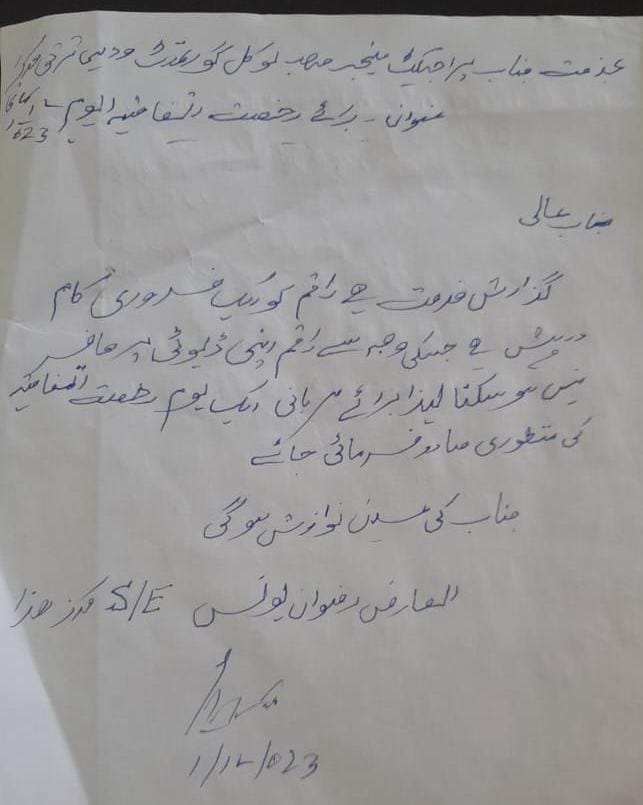 بخدمت جناب پراجیکٹ منیجر صاحب لوکل گورنمنٹ و دیہی ترقی مرکز
عنوان - برائے رخصت اتفاقیہ ایک یوم
جناب عالی
گذارش خدمت ہے راقم کو ایک ضروری کام
درپیش ہے جسکی وجہ سے راقم اپنی ڈیوٹی پر حاضر
نہیں ہو سکتا لہذا برائے مہربانی ایک یوم رخصت اتفاقیہ
کی منظوری صادر فرمائی جائے
جناب کی عین نوازش ہو گی
العارض رضوان یونس S/E مرکز ھذا
1/12/023